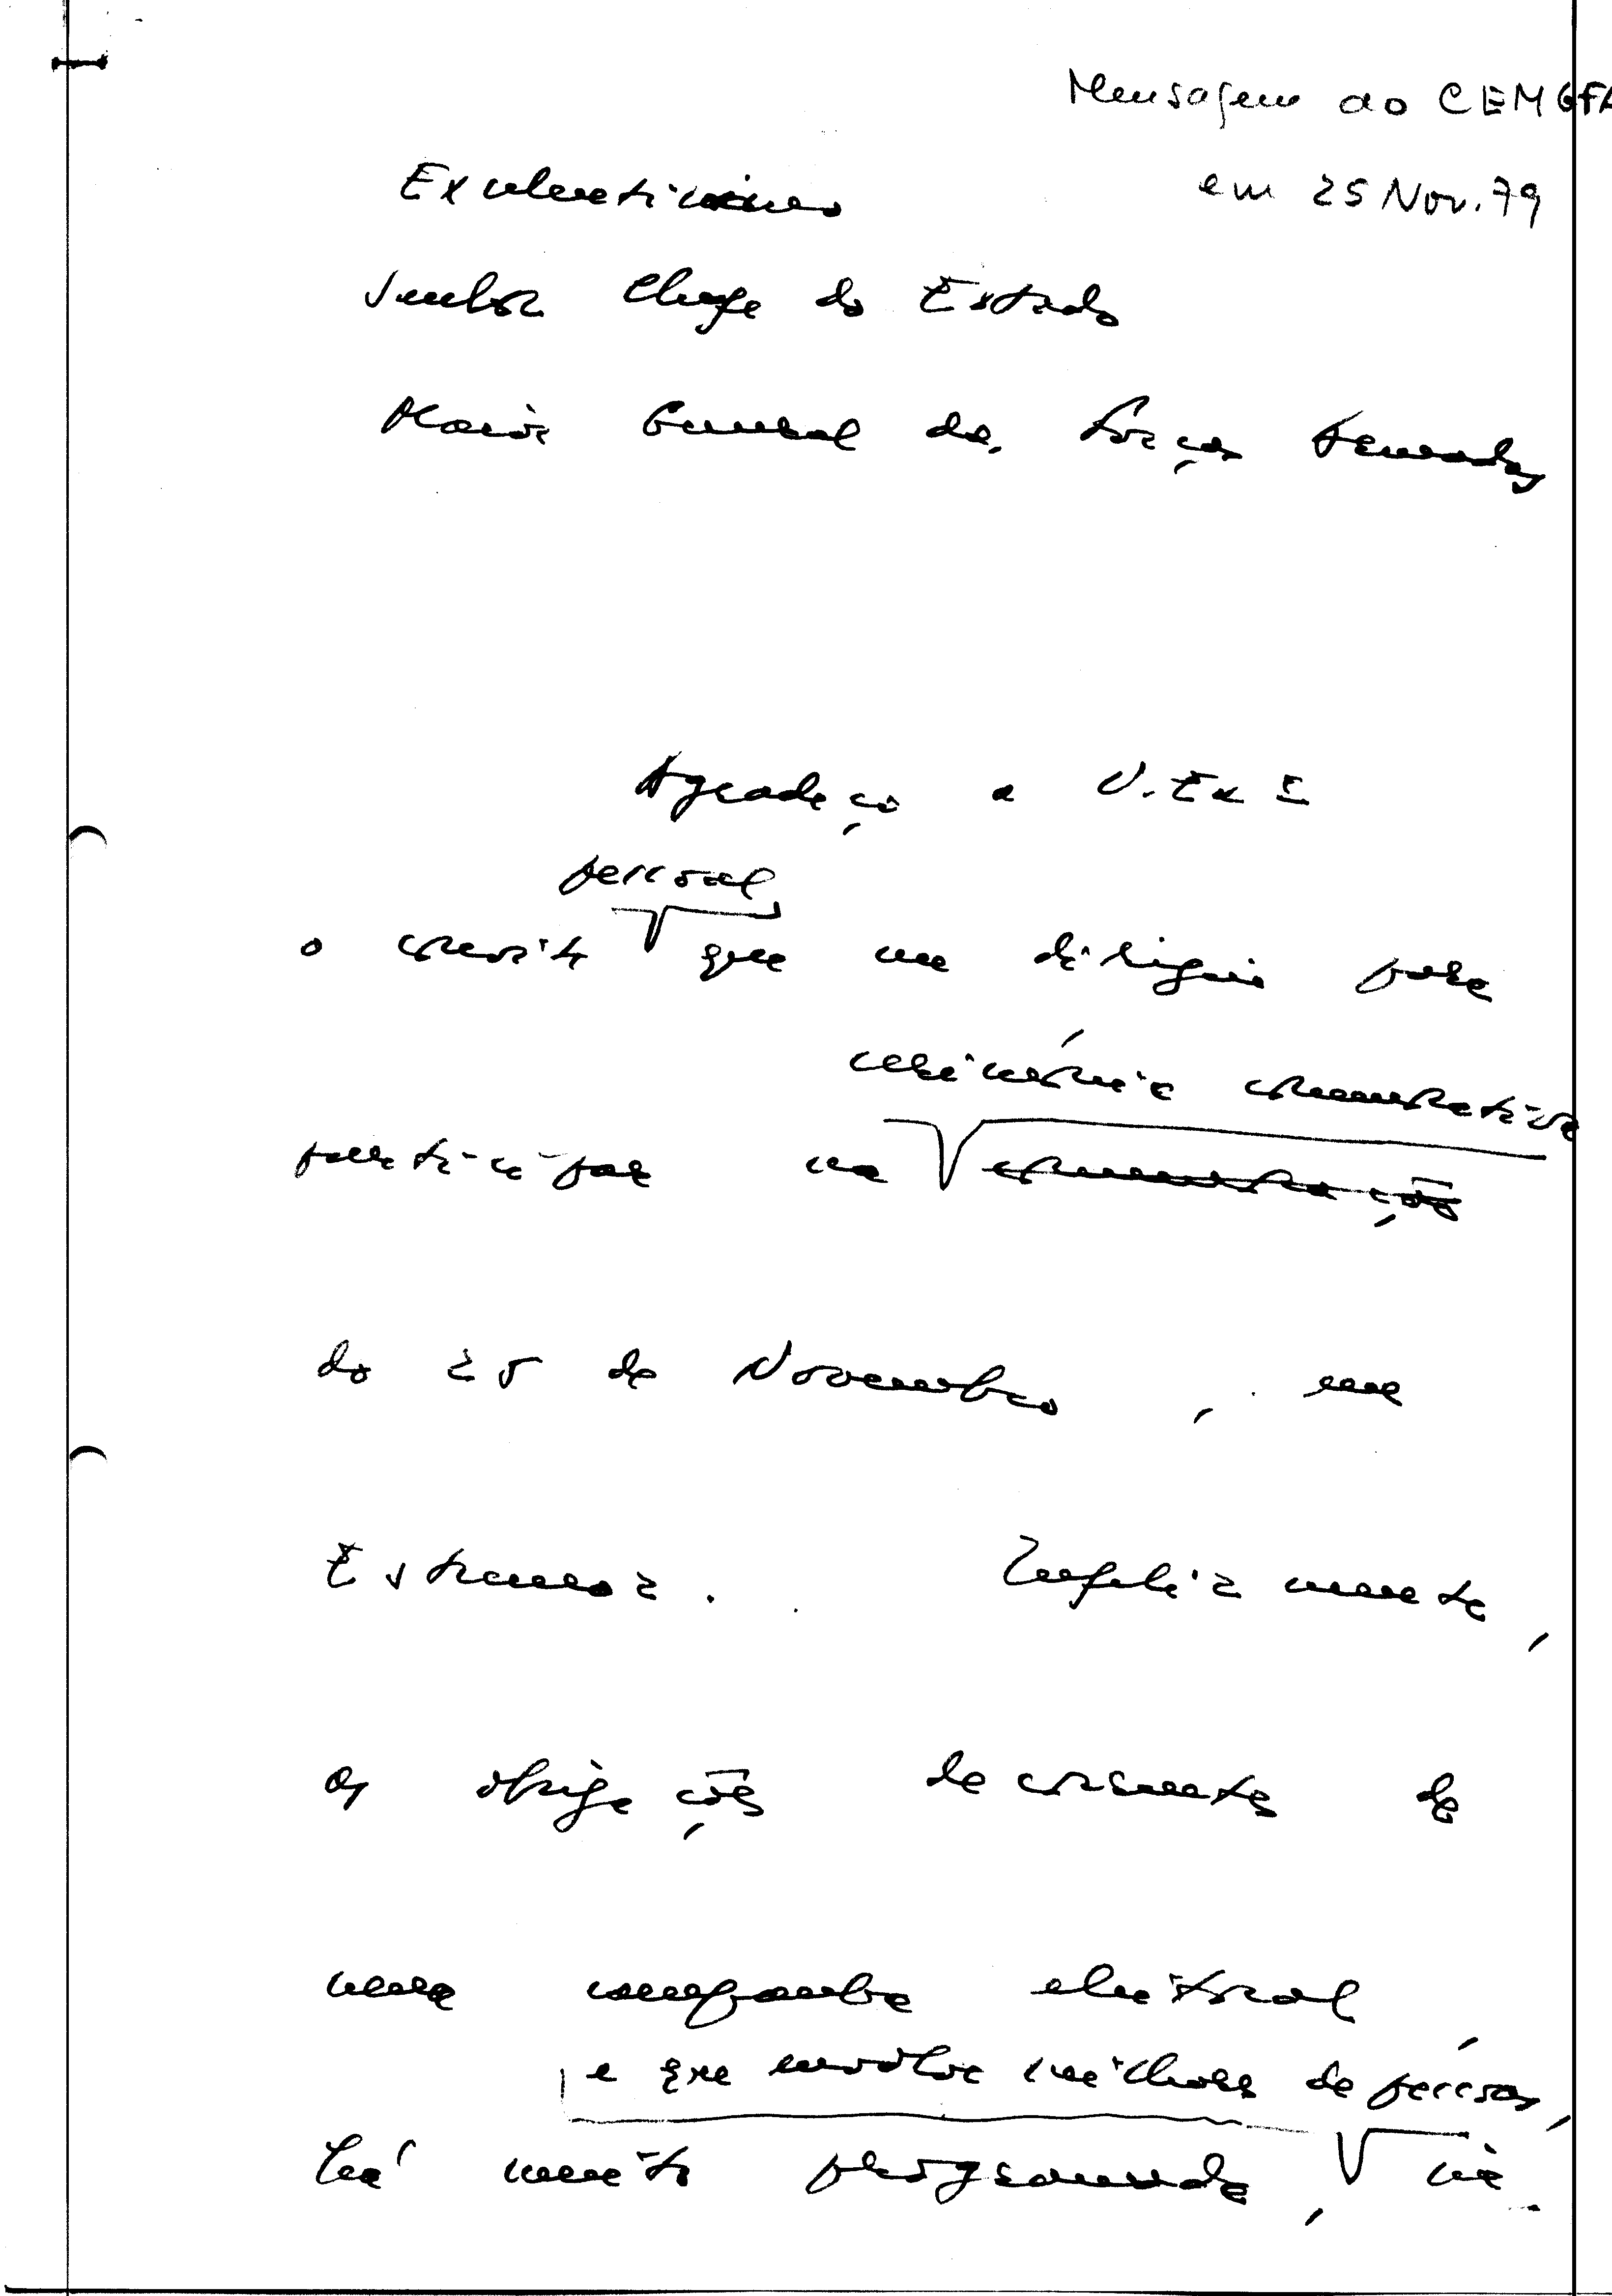 Mensagem ao CEMGFA
em 25 Nov. 79
Excelentíssimo
Senhor Chefe do Estado
Maior General das Forças Armadas
Agradeço a V. Exª
pessoal
o convite que me dirigiu para
cerimónia comemorativa
participar na comemoração
do 25 de Novembro, em
Estremoz. Infelizmente,
as obrigações decorrentes de
uma campanha eleitoral
e que envolve milhares de pessoas,
há muito programada, im-